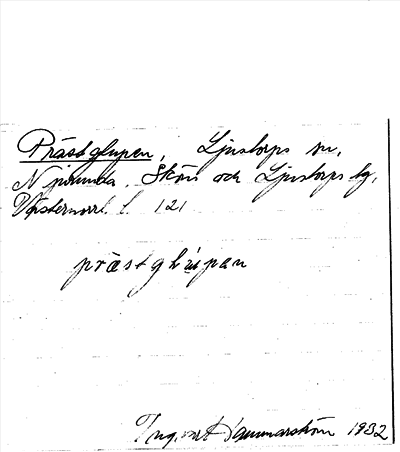 Prästglupen, Ljustorps sn,
Njurunda, Sköns och Ljustorps tg,
Västernorrl. l. 121
præstglupan
Ingwart Hammarström 1932